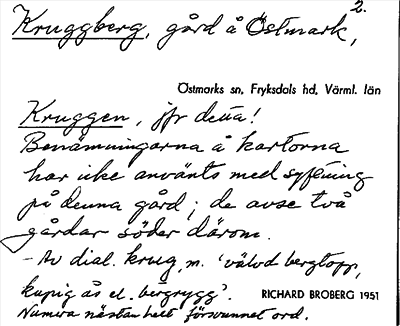 2.
Kruggberg, gård å Östmark,
Östmarks sn, Fryksdals hd, Värml. län
Kruggen, jfr detta!
Benämningarna å kartorna
har icke använts med syftning
på denna gård; de avse två
gårdar söder därom.
- Av dial. krug, m. 'välvd bergtopp,
kupig ås el. bergrygg'.
RICHARD BROBERG 1951
Numera nästan helt försvunnet ord.